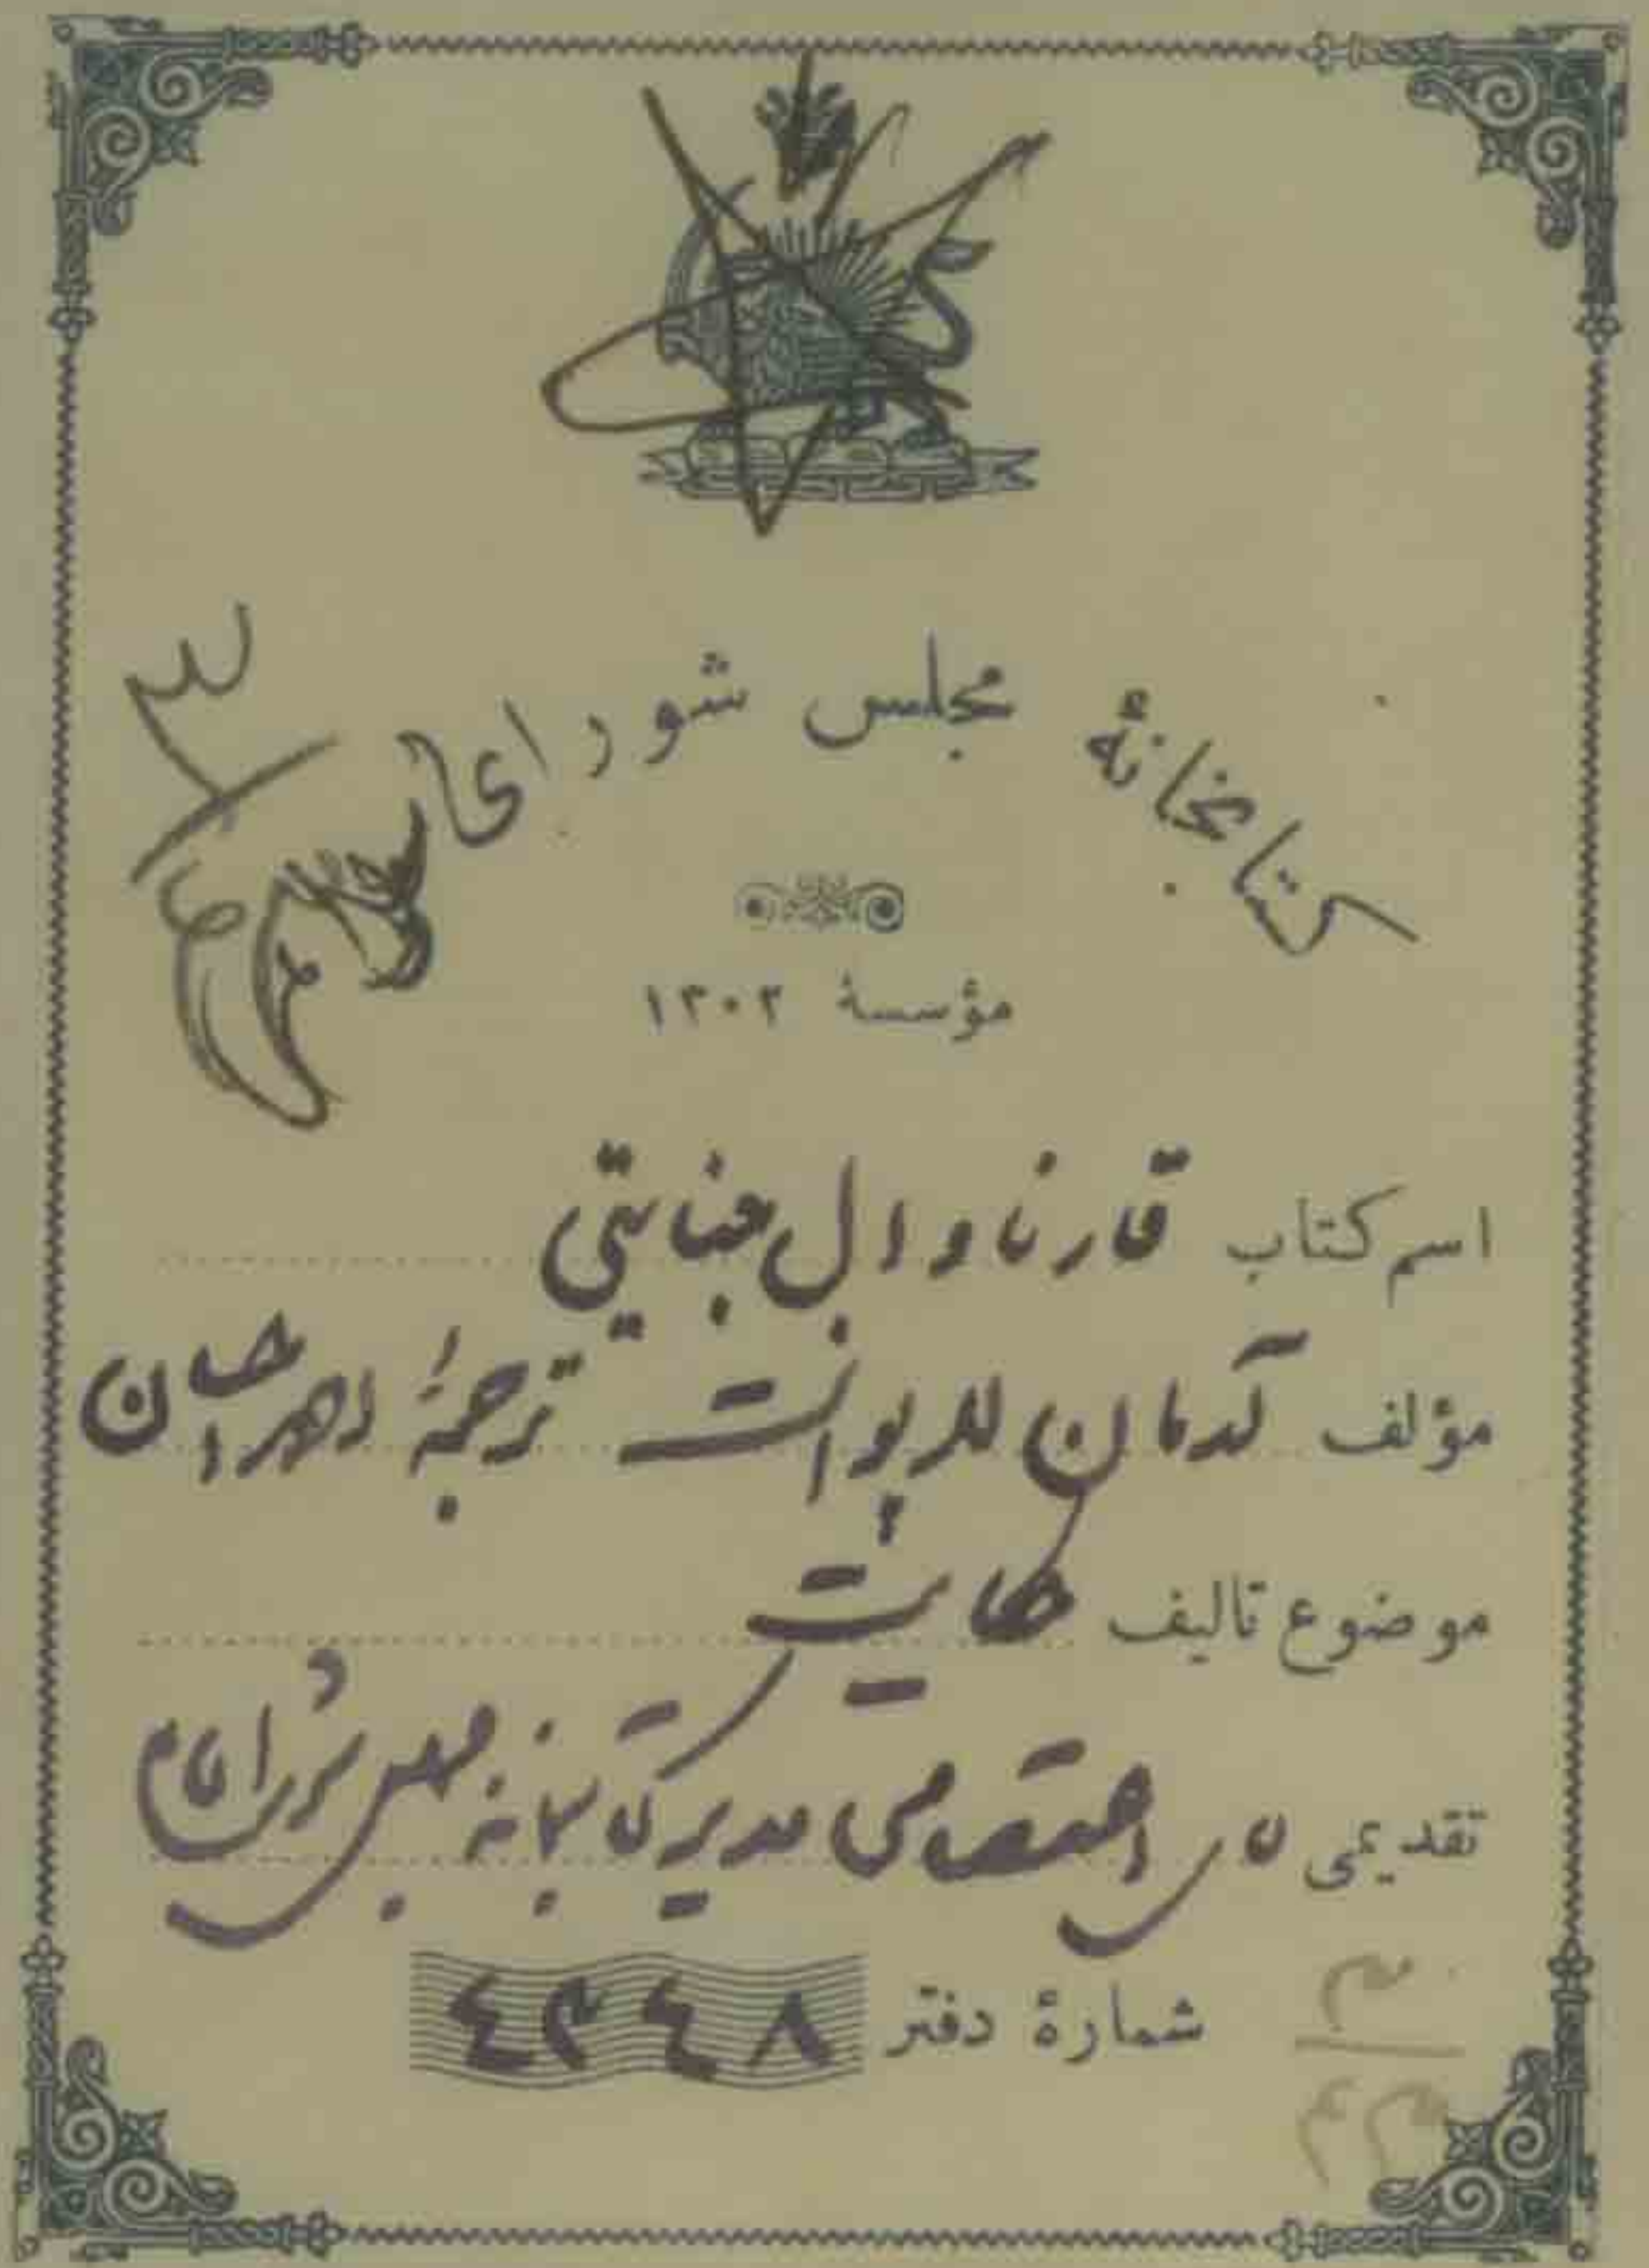 کتابخانهٔ مجلس شورای
مؤسسهٔ ۱۳۰۲
اسم کتاب قارناوال جنایتی
مؤلف آدمان للدپوانت ترجمهٔ احمد احسان
موضوع تالیف حکایت
تقدیمی اعتصامی مدیر کتابخانه مجلس شورای
شمارهٔ دفتر ٤٣٤٨